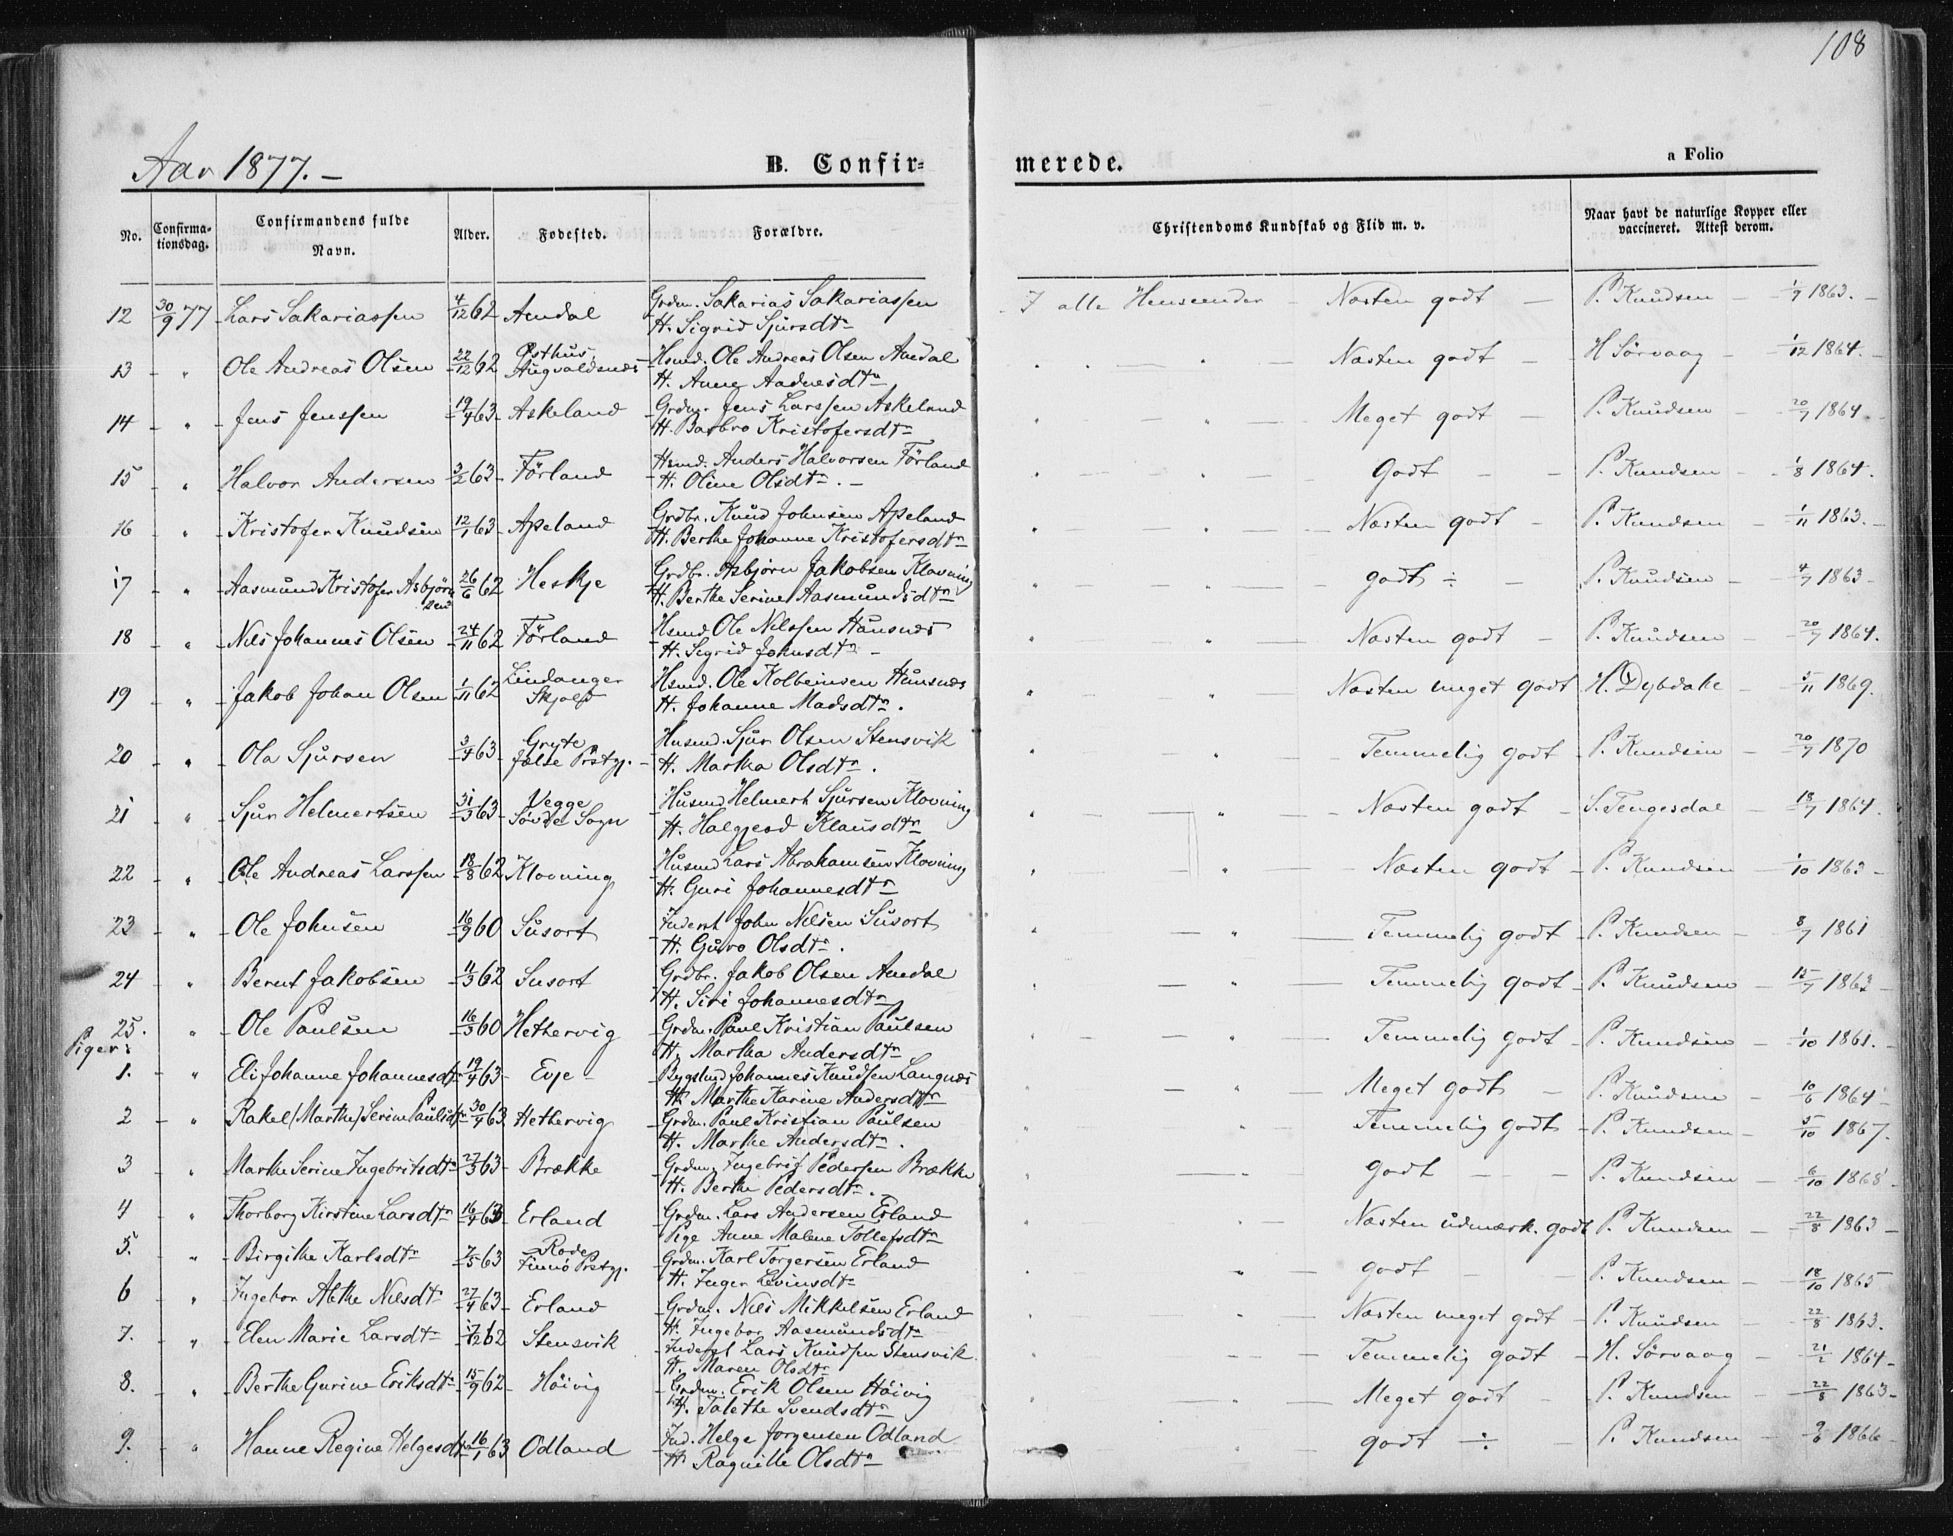 108
Aar 1877. –
B. Confir= merede.
a Folio
No. Confirma-tionsdag. Confirmandens fulde Navn. Alder. Fødested. Forældre. Christendoms Kundskab og Flid m. v. Naar havt de naturlige Kopper eller vaccineret. Attest derom.
12 30/9 77 Lars Sakariassen 4/12 62 Amdal Grdm. Sakarias Sakariassen I alle Henseender – Næsten godt – P. Knudsen – 1/9 1863. –
H. Sigrid Sjursdtr
13 – " – Ole Andreas Olsen 22/12 62 Østhus, Hsmd. Ole Andreas Olsen Amdal " – " – Næsten godt – H Sörvaag – 1/12 1864. –
Augvaldsnes H. Anne Aadnesdtr
14 – " – Jens Jenssen 19/4 63 – Askeland – Grdm. Jens Larssen Askeland " – " – Meget godt – P. Knudsen – 20/7 1864 –
H. Barbro Kristofersdtr
15 – " – Halvor Andersen 3/2 63 – Förland Hsmd. Anders Halvorsen Förland " – " – Godt – – P. Knudsen – 1/8 1864.
H. Oline Olsdtr. –
16 " – Kristofer Knudsen 12/1 63 – Apeland Grdbr. Knud Johnsen Apeland " – " – Næsten godt – P. Knudsen – 1/11 1863. –
H. Berthe Johanne Kristofersdtr
17 – " – Aasmund Kristofer Asbjørn 26/6 62 Heskje Grdbr. Asbjørn Jakobsen Klovning " – " – godt ÷ – P. Knudsen – 4/7 1863 –
sen H. Berthe Serine Aasmundsdtr
18 – " – Nils Johannes Olsen 24/11 62 Förland Hsmd Ole Nilssen Hausnes " – " – Næsten godt – P. Knudsen – 20/7 1864.
H. Sigrid Johnsdtr –
19 – " – Jakob Johan Olsen 1/11 62 Lindanger Hsmd. Ole Kolbeinsen Hausnes " – " – Næsten meget godt H. Dybdahl – 5/11 1869.
Skjold H. Johanne Madsdtr.
20 – " – Ola Sjursen 3/4 63 – Gryte Husmd. Sjur Olsen Stensvik " – " – Temmelig godt P. Knudsen – 20/7 1870
Prstgj. – H. Martha Olsdtr.
21 " – Sjur Helmertsen 31/3 63 – Vegge Husmd Helmert Sjursen Klovning " – " – Næsten godt – S. Tengesdal – 18/7 1864.
Sövde Sogn H. Halgjerd Klausdtr
22 – " – Ole Andreas Larssen 18/8 62 Klovning Husmd Lars Abrahamsen Klovning " – " – Næsten godt – P. Knudsen – 1/10 1863 –
H. Guri Johannesdtr
23 – " – Ole Johnsen 16/9 60 Susort Inderst John Nilsen Susort " – " – Temmelig godt – P. Knudsen – 8/7 1861
H. Guro Olsdtr.
24 " Bernt Jakobsen 11/3 62 Susort Grdbr. Jakob Olsen Amdal " – " – Temmelig godt – P. Knudsen – 15/7 1863 –
H. Siri Johannesdtr
25. " – Ole Paulsen 16/3 60 Hethervig – Grdm. Paul Kristian Paulsen " – " – Temmelig godt – P. Knudsen – 1/10 1861. –
H. Martha Andersdtr
Piger:
1. " – Eli Johanne Johannesdtr 19/4 63 – Evje – Bygslmd Johannes Knudsen Langnes " – " – Meget godt – P. Knudsen – 10/6 1864
H. Marthe Karine Andersdtr
2 – " – Rakel (Marthe) Serine Paulsdtr 30/4 63 Hethervig – Grdm. Paul Kristian Paulsen " – " – Temmelig godt – P. Knudsen – 5/10 1867.
H. Marthe Andersdtr.
3 " – Marthe Serine Ingebritsdtr 27/3 63 – Brække – Grdm. Ingebrit Pedersen Brække " – " – Godt – – P. Knudsen – 6/10 1868
H. Berthe Pedersdtr.
4 " Thorborg Kirstine Larsdtr 16/4 63 – Erland – Grdm. Lars Andersen Erland " – " – Næsten udmærk. godt P. Knudsen – 22/8 1863 –
Pige Anne Malene Tollefsdtr
5. " – Birgithe Karlsdtr 7/5 63 – Rode Grdm. Karl Torgersen Erland " – " – godt – – P. Knudsen – 18/10 1865
Finnö Prstgj. H. Inger Levinsdtr
6 " Ingebor Nilsdtr 27/4 63 – Erland – Grdm. Nils Mikkelsen Erland " – " – Næsten meget godt – P. Knudsen – 22/8 1863.
H. Ingebor Aasmundsdtr
7. " – Elen Marie Larsdtr 17/12 62 – Stensvik – Inderst Lars Knudsen Stensvik " – " – Temmelig godt – H. Sörvaag – 21/2 1864 –
H. Maren Olsdtr
8. " – Berthe Gurine Eriksdtr 15/9 62 – Höivig – Grdm. Erik Olsen Höivig " – " – Meget godt – P. Knudsen – 22/8 1863 –
H. Talethe Svendsdtr
9. " – Hanne Regine Helgesdtr 16/1 63 Odland – Ind. Helge Jorgensen Odland " – " – godt ÷ – P. Knudsen – 1866 –
H. Ragnille Olsdtr